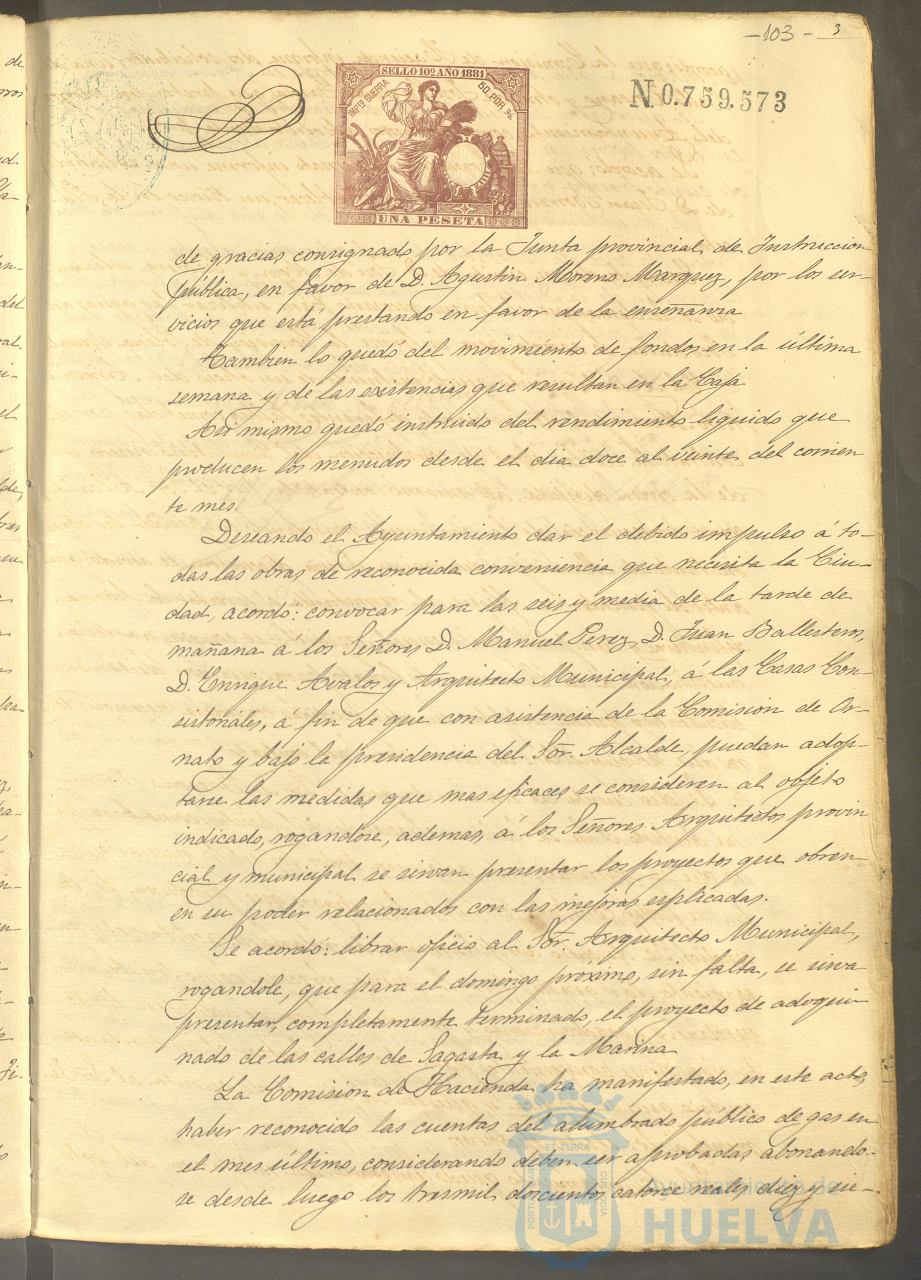 -103- 3
SELLO 10º AÑO 1881
IMPTO GUERRA 50 POR %
N 0.759.573
UNA PESETA
de gracias consignado por la Junta provincial de Instruccion
pública, en favor de D. Agustin Moreno Marquez, por los ser-
vicios que está prestando en favor de la enseñanza
Tambien lo quedó del movimiento de fondos en la última
semana y de las existencias que resultan en la Caja
Asi mismo quedó instruido del rendimiento liquido que
producen los menudos desde el dia doce al veinte del corrien
te mes.
Deseando el Ayuntamiento dar el debido impulso á to-
das las obras de reconocida conveniencia que necesita la Ciu-
dad, acordó: convocar para las seis y media de la tarde de
mañana á los Señores D. Manuel Perez, D. Juan Ballesteros,
D. Enrique Avalos y Arquitecto Municipal, á las Casas Con-
sistoriales, á fin de que con asistencia de la Comision de Or-
nato y bajo la presidencia del Sor. Alcalde, puedan adop-
tarse las medidas que mas eficaces se consideren al objeto
indicado, rogandose, ademas, á los Señores Arquitectos provin
cial y municipal se sirvan presentar los proyectos que obren
en su poder relacionados con las mejoras esplicadas.
Se acordó: librar oficio al Sor. Arquitecto Municipal,
rogandole, que para el domingo próximo, sin falta, se sirva
presentar, completamente terminado, el proyecto de adoqui
nado de las calles de Sagasta y la Marina
La Comision de Hacienda ha manifestado, en este acto,
haber reconocido las cuentas del alumbrado público de gas en
el mes último, considerando deben ser aprobadas, abonando-
se desde luego los tresmil doscientos catorce reales diez y sie-
Ayuntamiento de
HUELVA